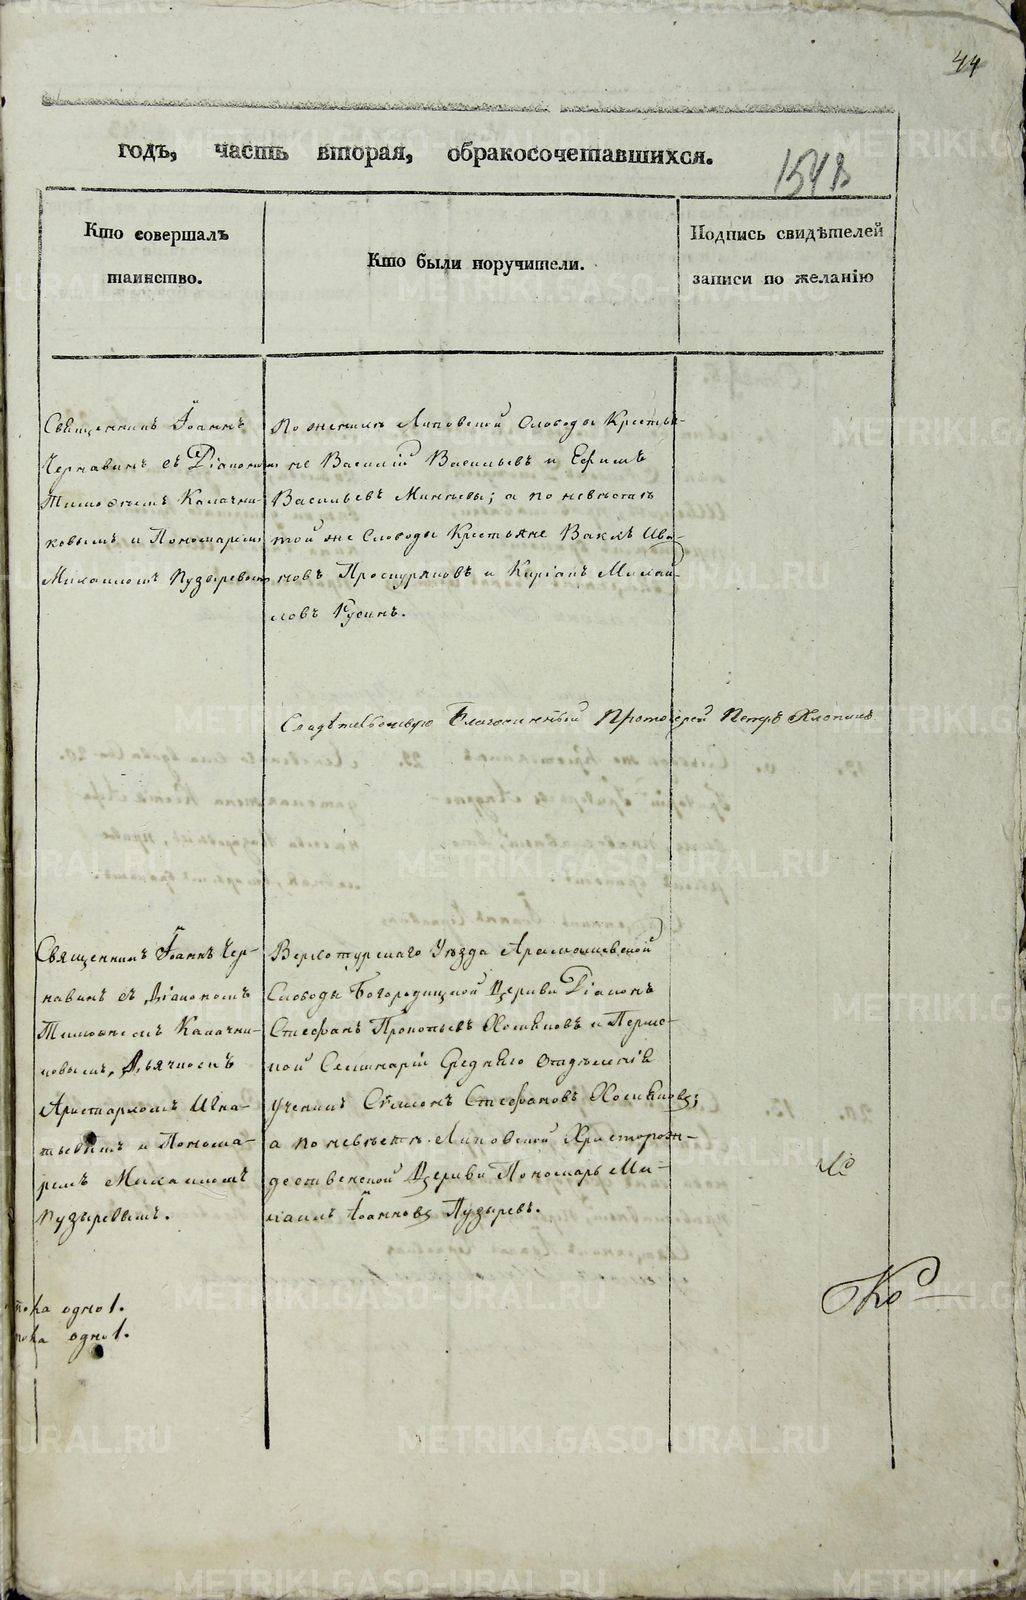 44
годъ, часть вторая, обракосочетавшихся.
154
Кто совершалъ
таинство.
Кто были поручители.
Подпись свидѣтелей
записи по желанію
Священникъ Іоаннъ
Чернавинъ съ Діакономъ
Тимоѳеемъ Калачни-
ковымъ и Пономаремъ
Михаиломъ Пузыревымъ
По женихѣ Липовской Слободы Крестья-
не Василій Васильевъ и Ефимъ
Васильевъ Минѣевы; а по невѣстѣ
той же Слободы Крестьяне Ива-
новъ Проскуряковъ и Киріанъ Михай-
ловъ Русинъ.
Свидѣтельствую Благочинный Протоіерей Петръ
Священникъ Іоаннъ Чер-
навинъ съ Діакономъ
Тимоѳеемъ Калачни-
ковымъ, Дьячкомъ
Аристархомъ Игна-
тьевымъ и Понома-
ремъ Михаиломъ
Пузыревымъ.
Верхотурскаго Уѣзда Арамашевской
Слободы Богородицкой Церкви Діаконъ
Стефанъ Прокопьевъ Хомяковъ и Перм-
ской Семинаріи Средняго Отдѣленія
Ученикъ Сѵмеонъ Стефановъ Хомяковъ;
а по невѣстѣ Липовской Христорож-
дественской Церкви Пономарь Ми-
хаилъ Іоанновъ Пузыревъ.
одно 1.
одно 1.